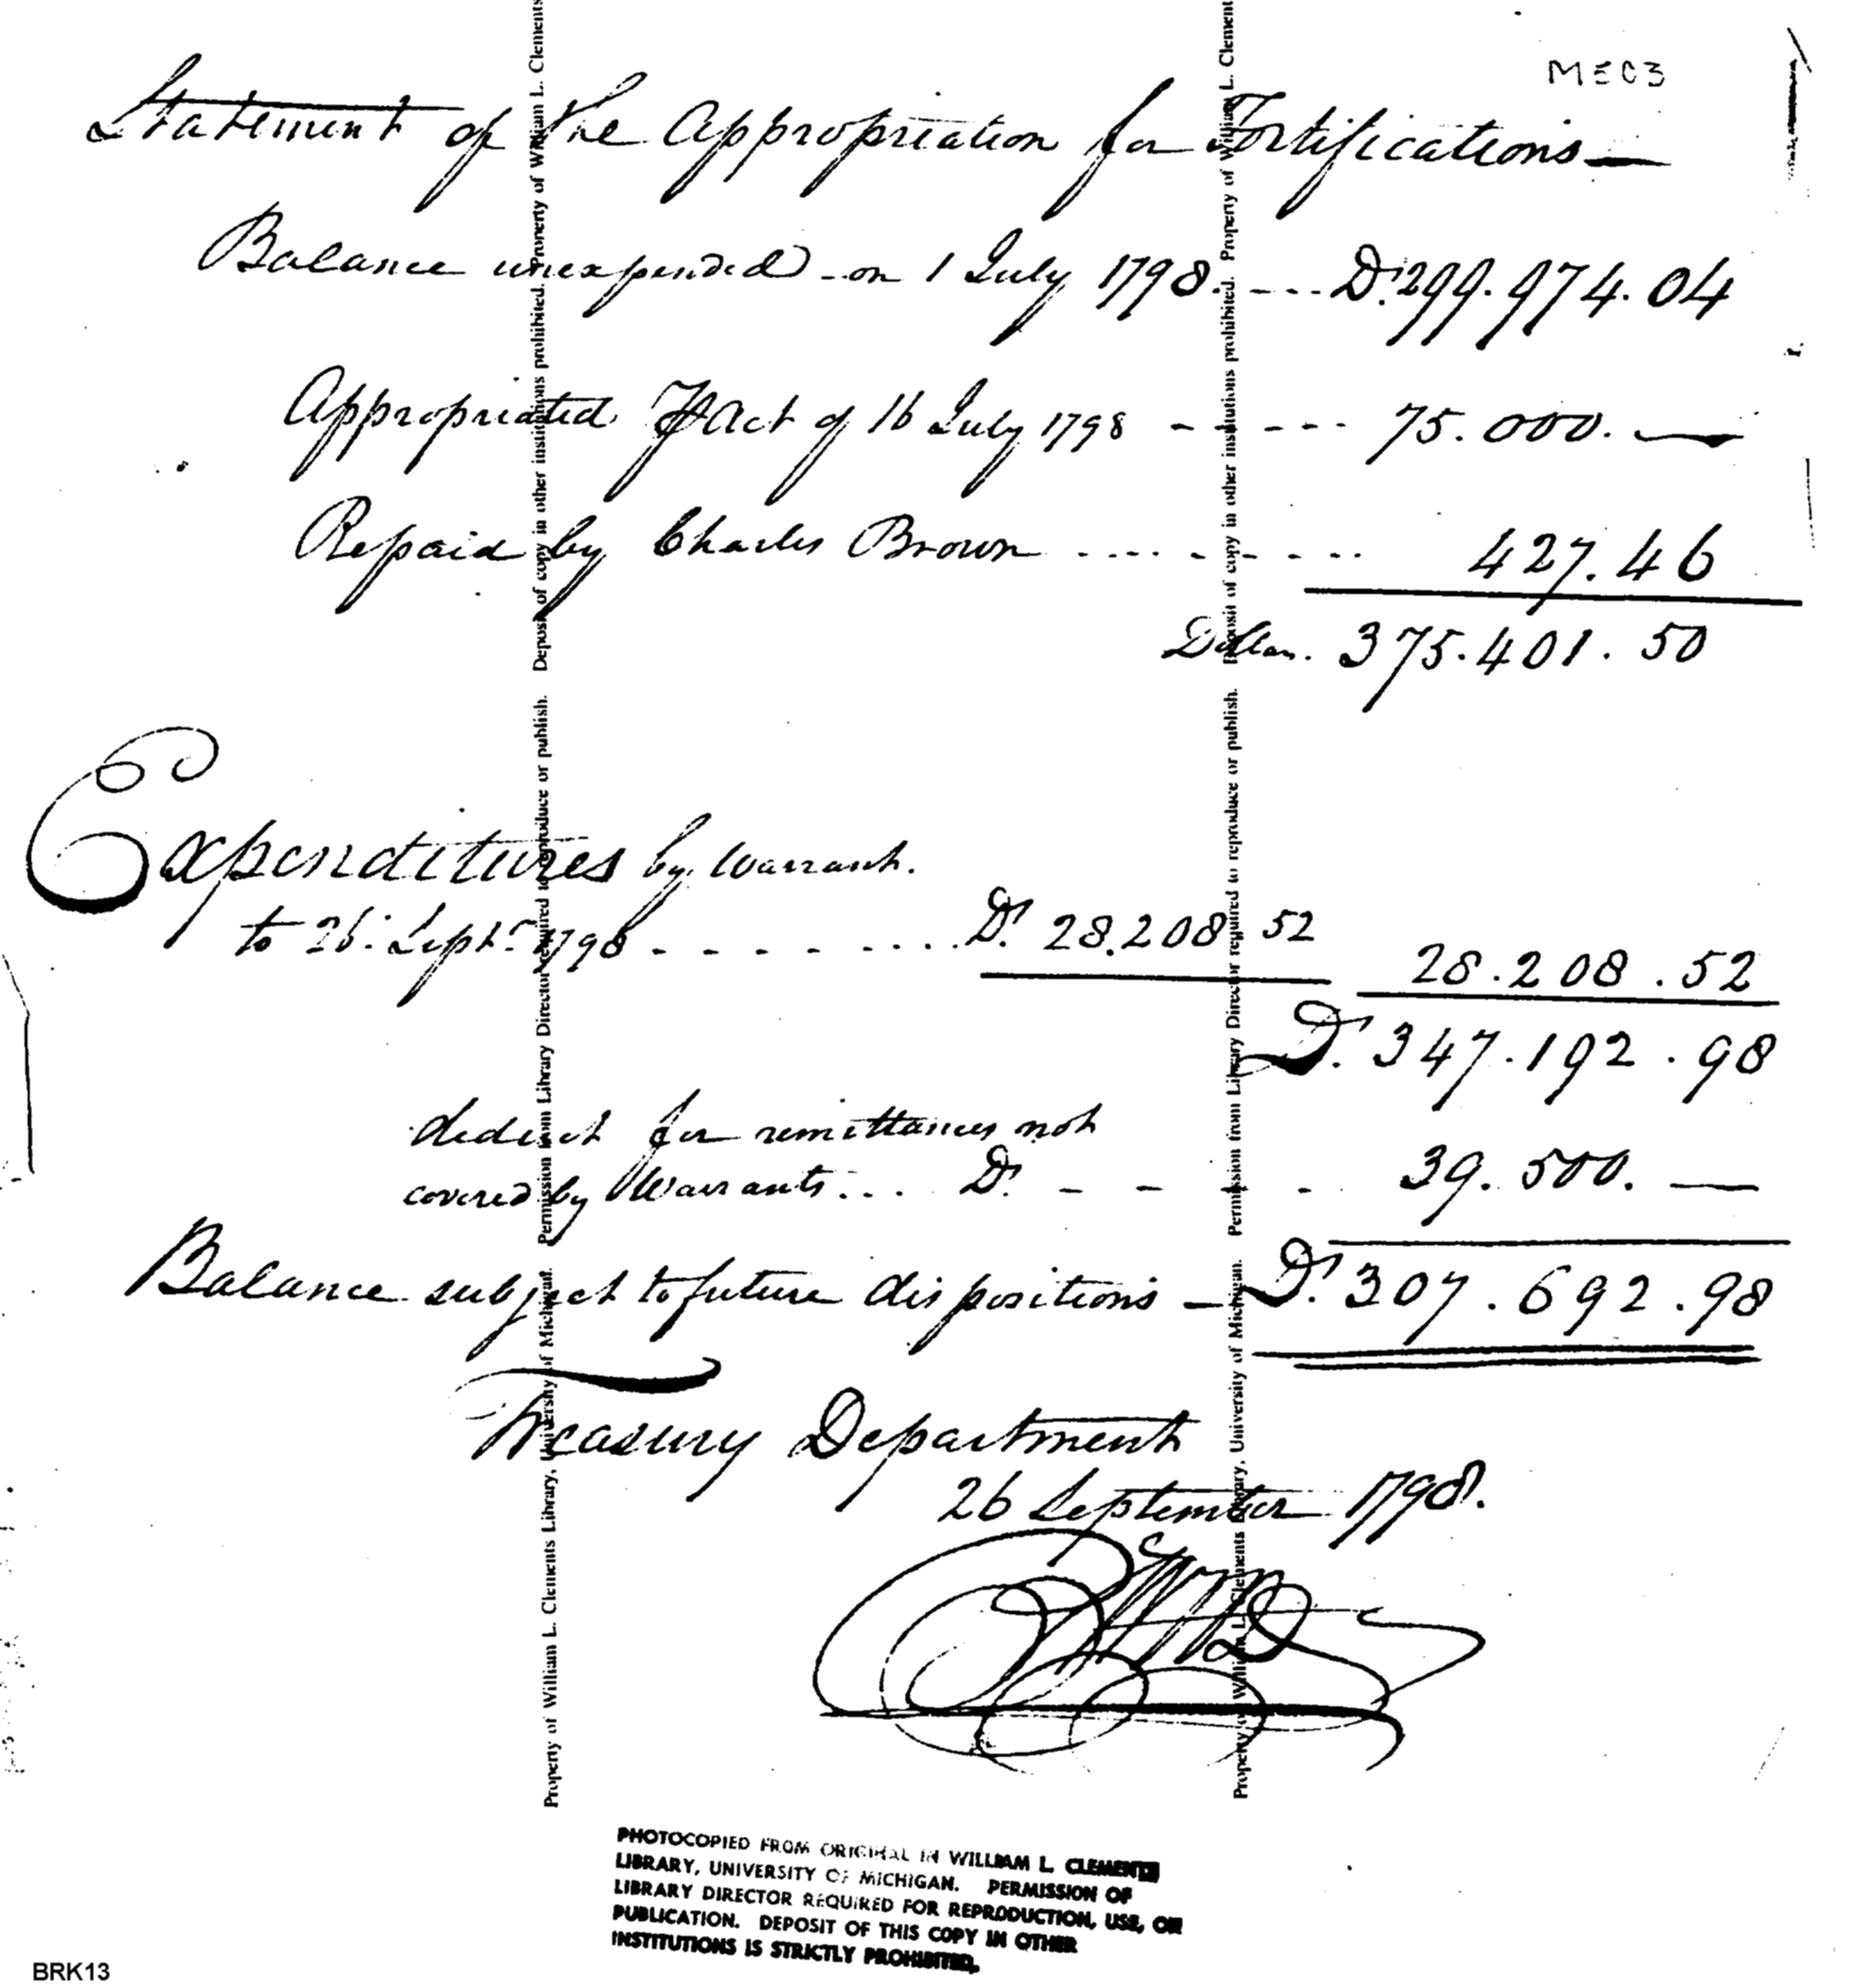 MEC3
Statement of the Appropriation for Fortifications —
Balance unexpended - on 1 July 1798. - - - - D.r 299.974.04
Appropriated Act of 16 July 1798 - - - - - - 75.000. —
Repaid by Charles Brown - - - - - - - - - 427.46
Dollars. 375.401.50
Expenditures by Warrant.
to 26. Sept.r 1798 - - - - - - - - D.r 28.208 52
28.208.52
D.r 347.192.98
deduct for remittances not
covered by Warrants... D.r - - - - 39.500. —
Balance subject to future dispositions — D.r 307.692.98
Treasury Department
26 September 1798.
Property of William L. Clements Library, University of Michigan. Permission from Library Director required to reproduce or publish. Deposit of copy in other institutions prohibited. Property of William L. Clements
Property of William L. Clements Library, University of Michigan. Permission from Library Director required to reproduce or publish. Deposit of copy in other institutions prohibited. Property of William L. Clement
PHOTOCOPIED FROM ORIGINAL IN WILLIAM L. CLEMENTS
LIBRARY, UNIVERSITY OF MICHIGAN. PERMISSION OF
LIBRARY DIRECTOR REQUIRED FOR REPRODUCTION, USE, OR
PUBLICATION. DEPOSIT OF THIS COPY IN OTHER
INSTITUTIONS IS STRICTLY PROHIBITED.
BRK13